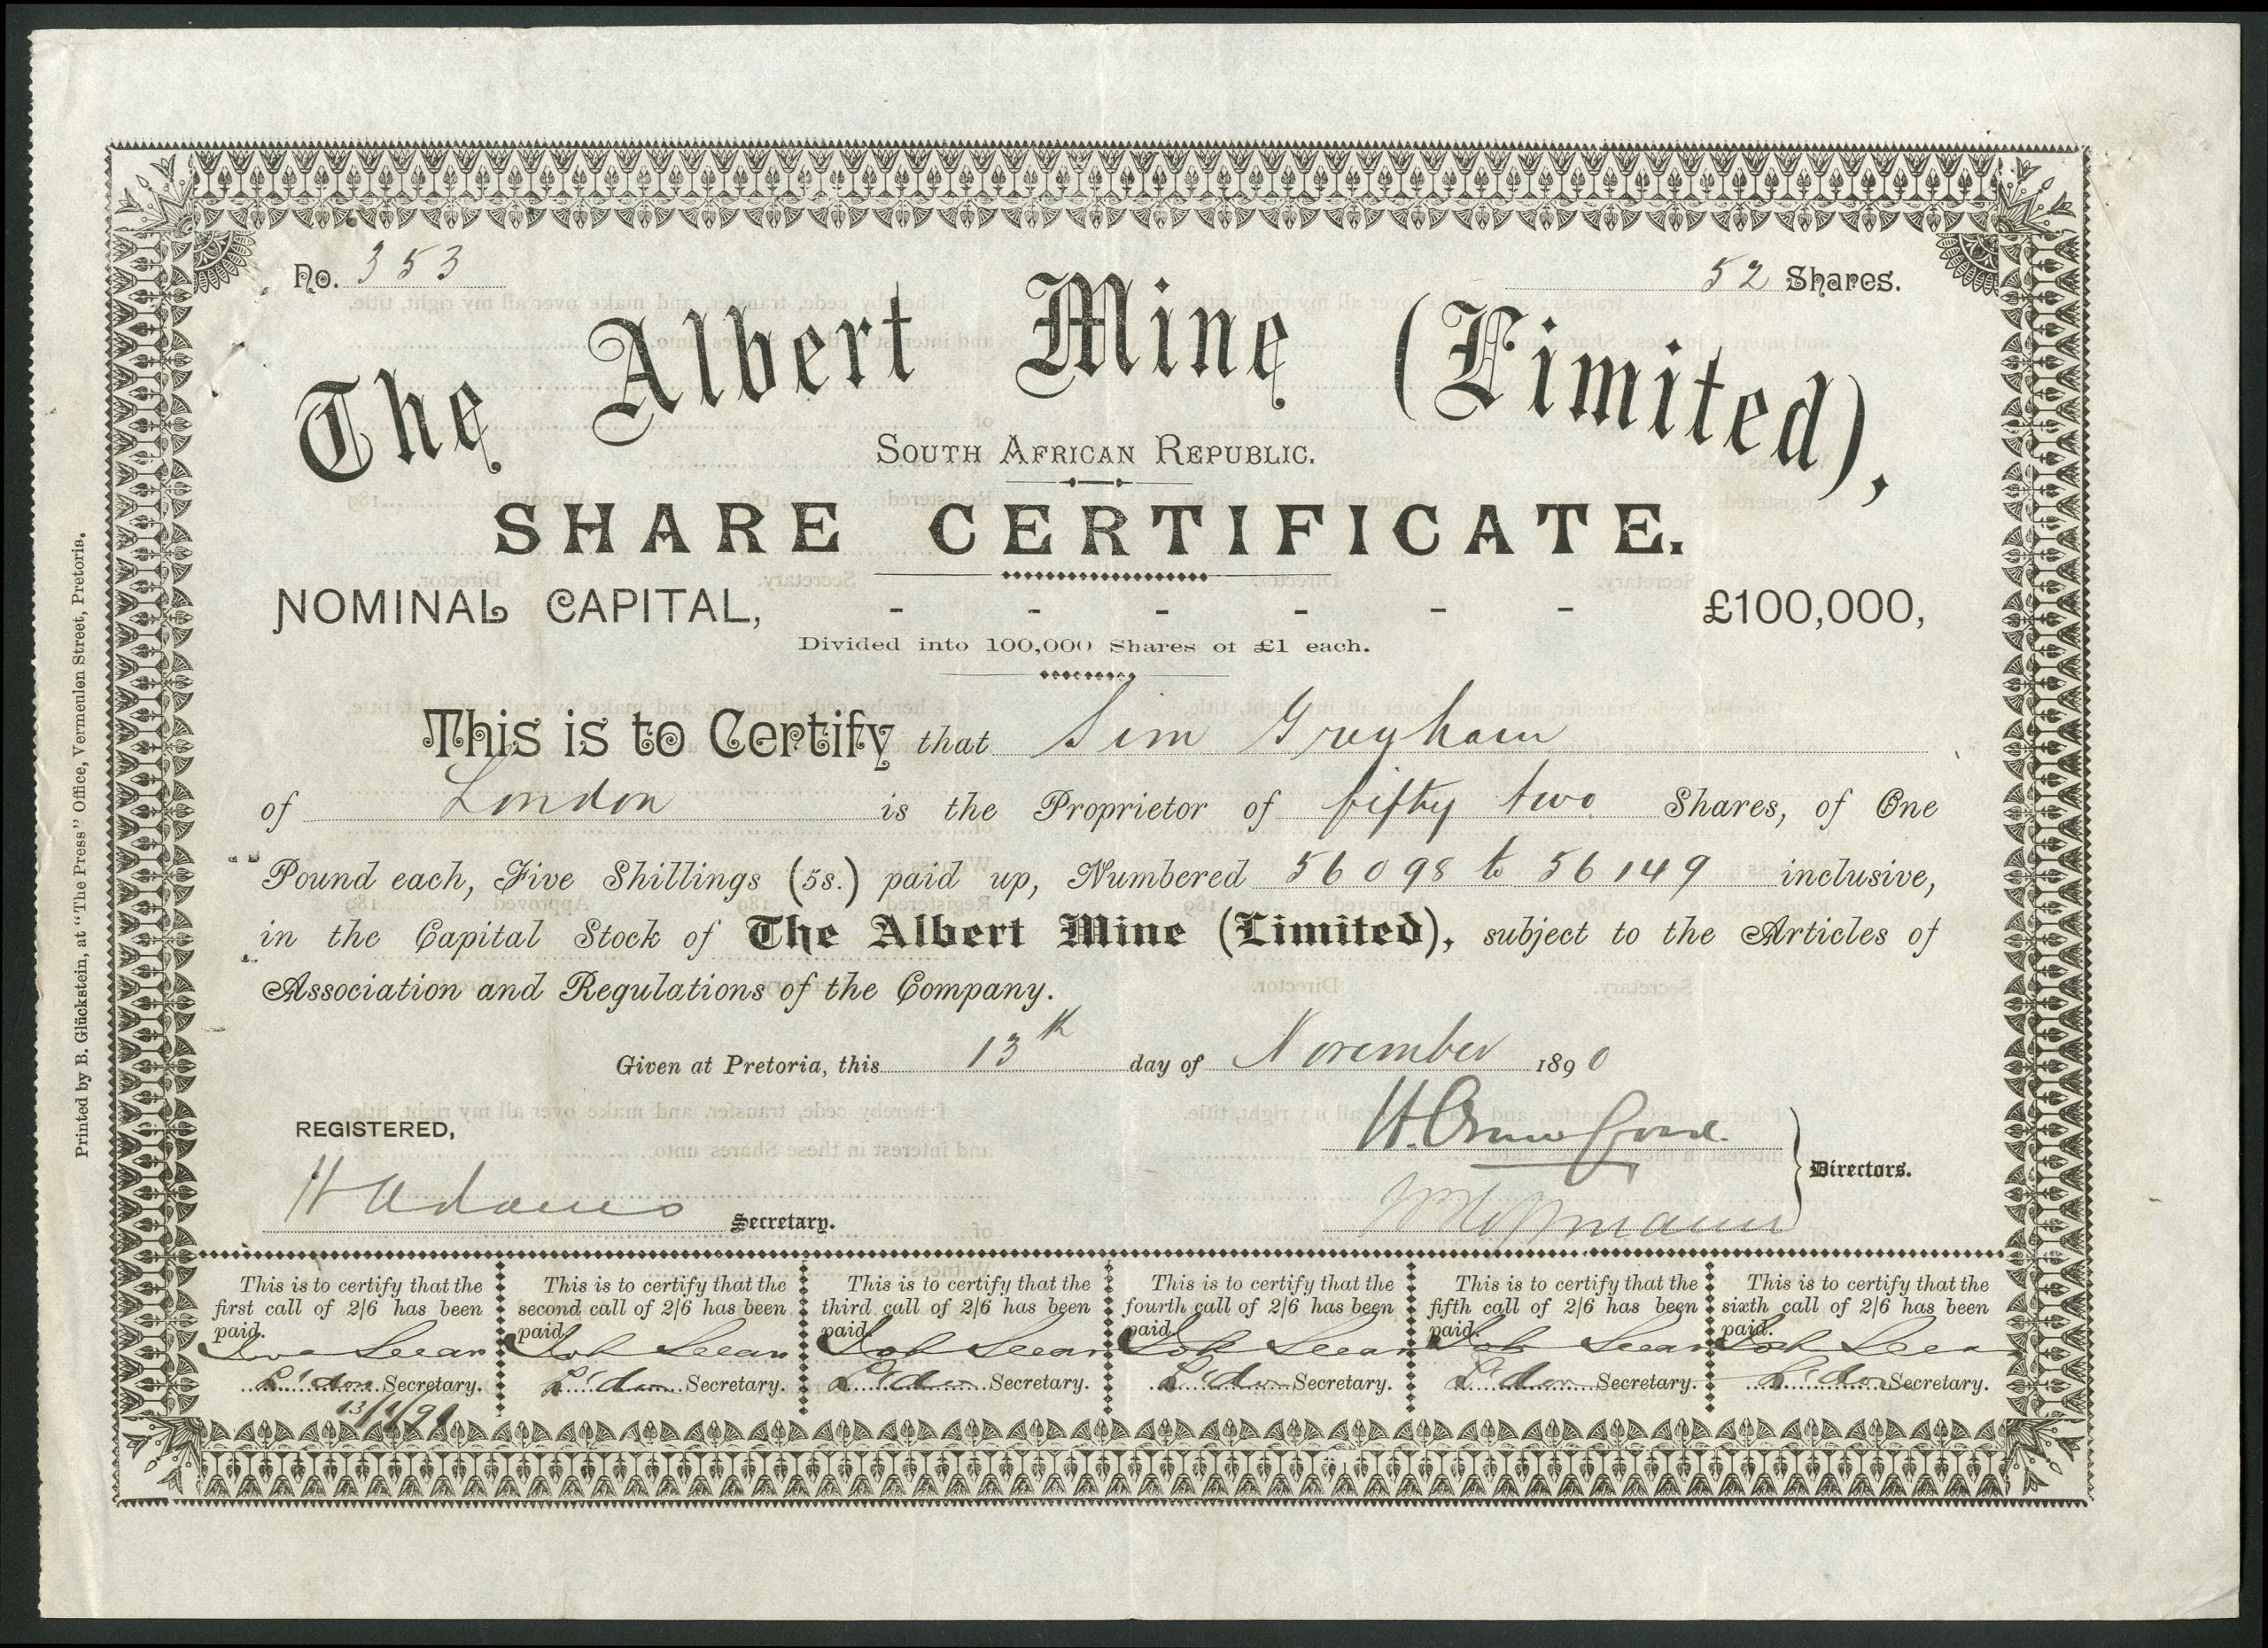 No. 353
52 Shares.
The Albert Mine (Limited),
SOUTH AFRICAN REPUBLIC.
SHARE CERTIFICATE.
NOMINAL CAPITAL, - - - - - - £100,000,
Divided into 100,000 Shares of £1 each.
This is to Certify that Sim Greyham
of London is the Proprietor of fifty two Shares, of One
Pound each, Five Shillings (5s.) paid up, Numbered 56098 to 56149 inclusive,
in the Capital Stock of The Albert Mine (Limited), subject to the Articles of
Association and Regulations of the Company.
Given at Pretoria, this 13th day of November 1890
REGISTERED,
H Adams Secretary.
Directors.
This is to certify that the
first call of 2/6 has been
paid.
Secretary.
This is to certify that the
second call of 2/6 has been
paid.
Secretary.
This is to certify that the
third call of 2/6 has been
paid.
Secretary.
This is to certify that the
fourth call of 2/6 has been
paid.
Secretary.
This is to certify that the
fifth call of 2/6 has been
paid.
Secretary.
This is to certify that the
sixth call of 2/6 has been
paid.
Secretary.
Printed by B. Glückstein, at "The Press" Office, Vermeulen Street, Pretoria.